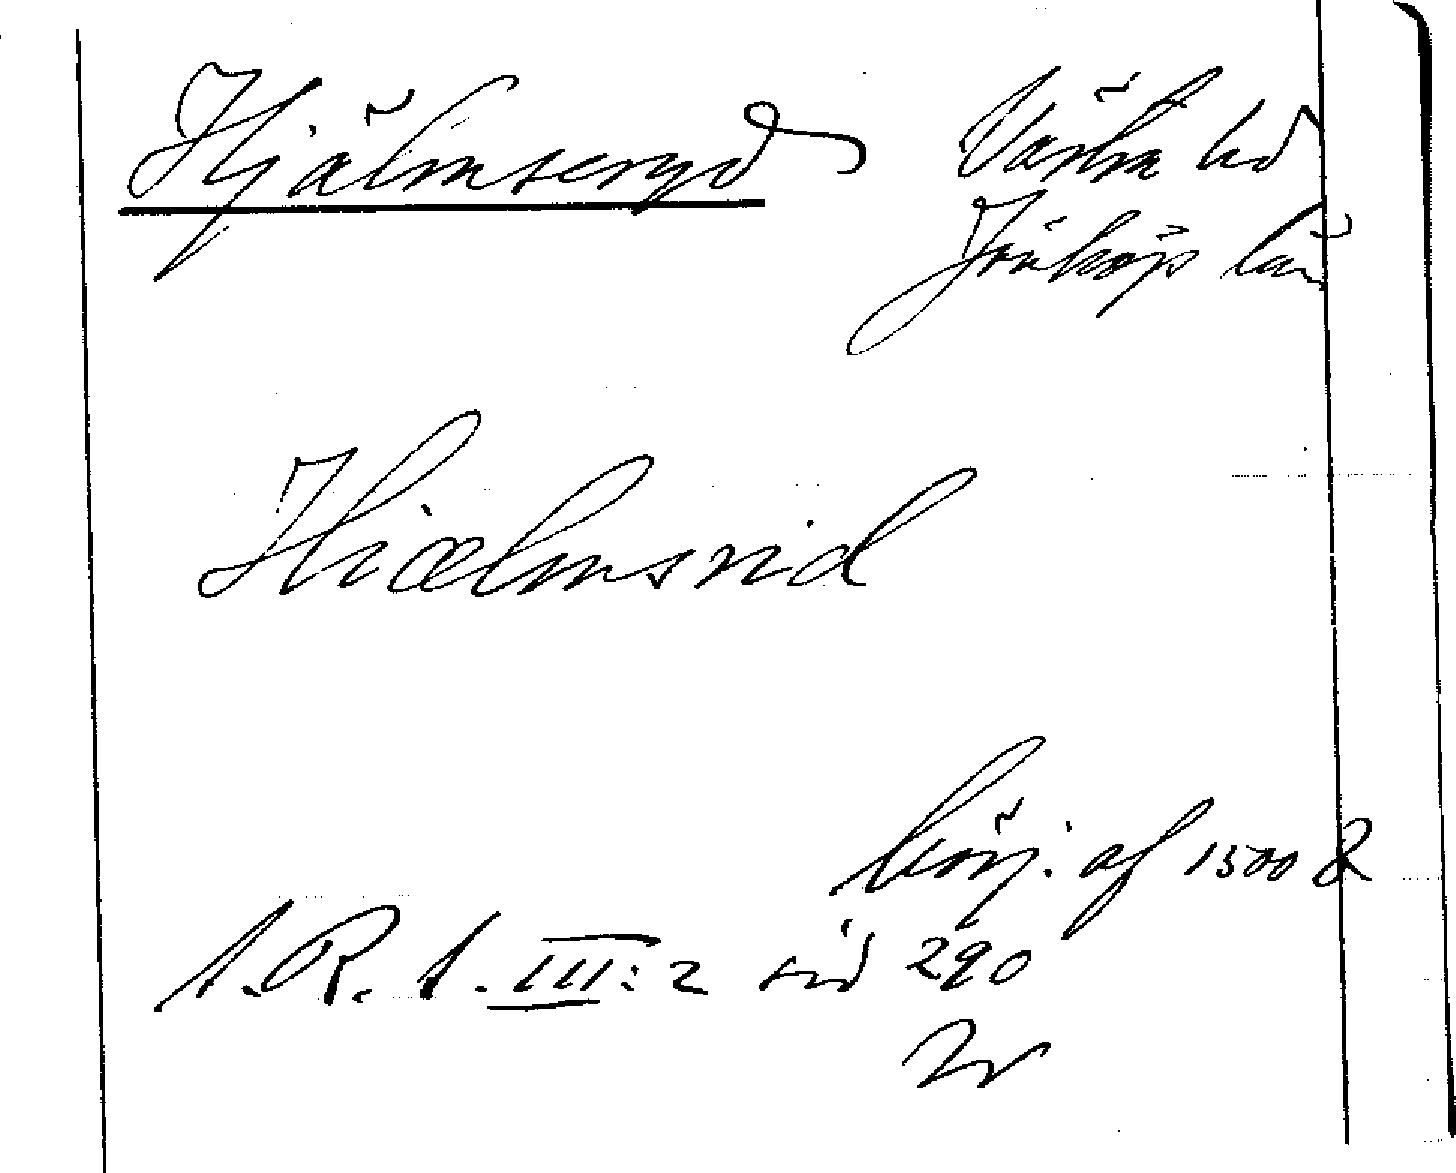 Hjälmseryd Västra hd
Jönköp län
Hiælmsrid
börj. af 1500 t
S.R.S. III:2 sid 290